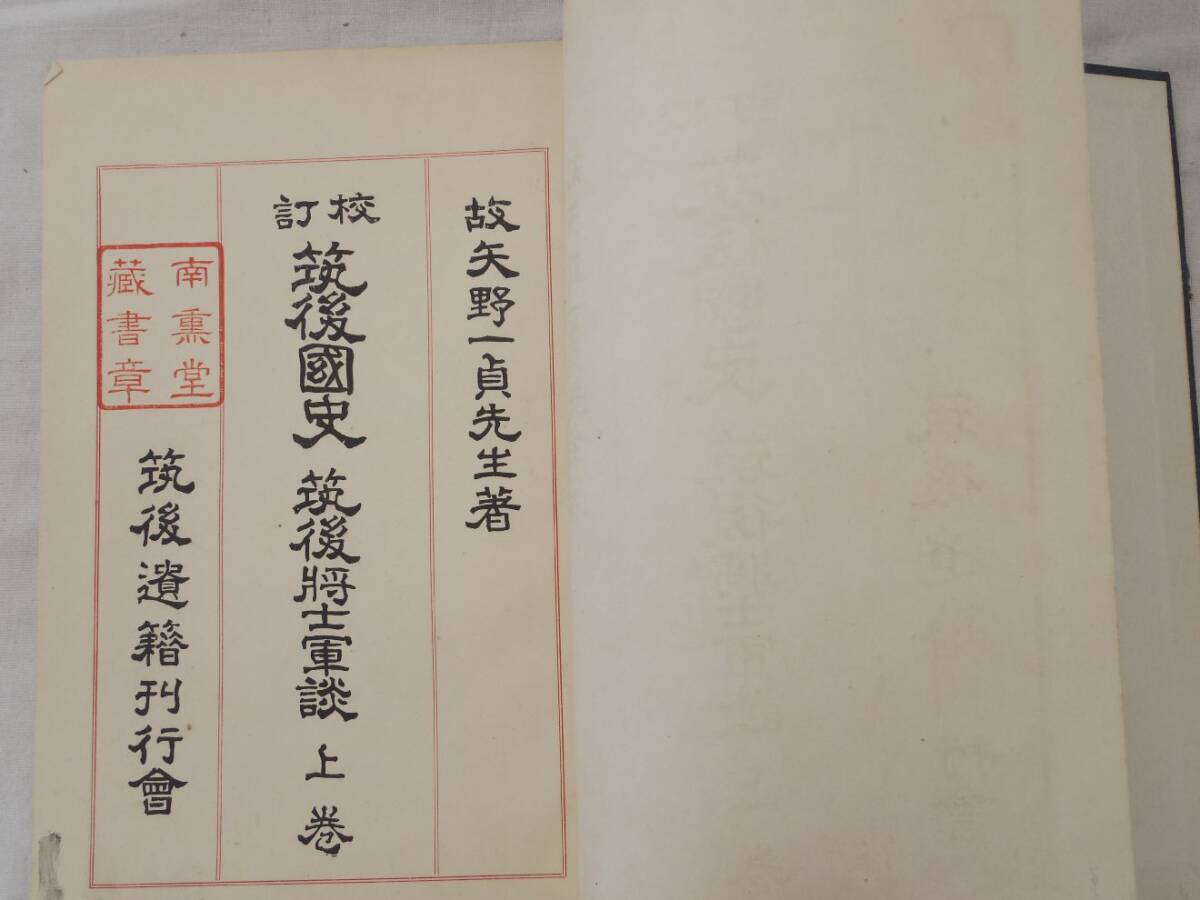 故矢野一貞先生著
校訂
筑後國史 筑後將士軍談 上巻
南熏堂
藏書章
筑後遺籍刊行會